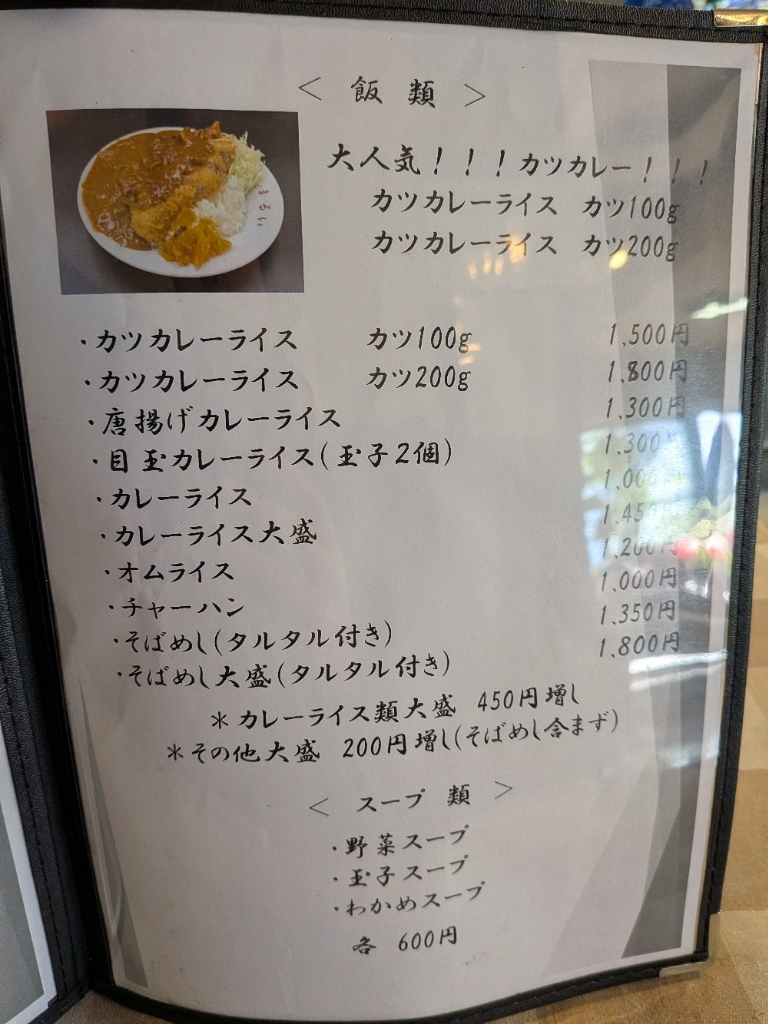 ＜ 飯 類 ＞
大人気！！！カツカレー！！！
カツカレーライス カツ100g
カツカレーライス カツ200g
まるい
・カツカレーライス カツ100g 1,500円
・カツカレーライス カツ200g 1,800円
・唐揚げカレーライス 1,300円
・目玉カレーライス(玉子2個) 1,300円
・カレーライス 1,000
・カレーライス大盛 1,450
・オムライス 1,200円
・チャーハン 1,000円
・そばめし(タルタル付き) 1,350円
・そばめし大盛(タルタル付き) 1,800円
＊カレーライス類大盛 450円増し
＊その他大盛 200円増し(そばめし含まず)
＜ スープ 類 ＞
・野菜スープ
・玉子スープ
・わかめスープ
各 600円